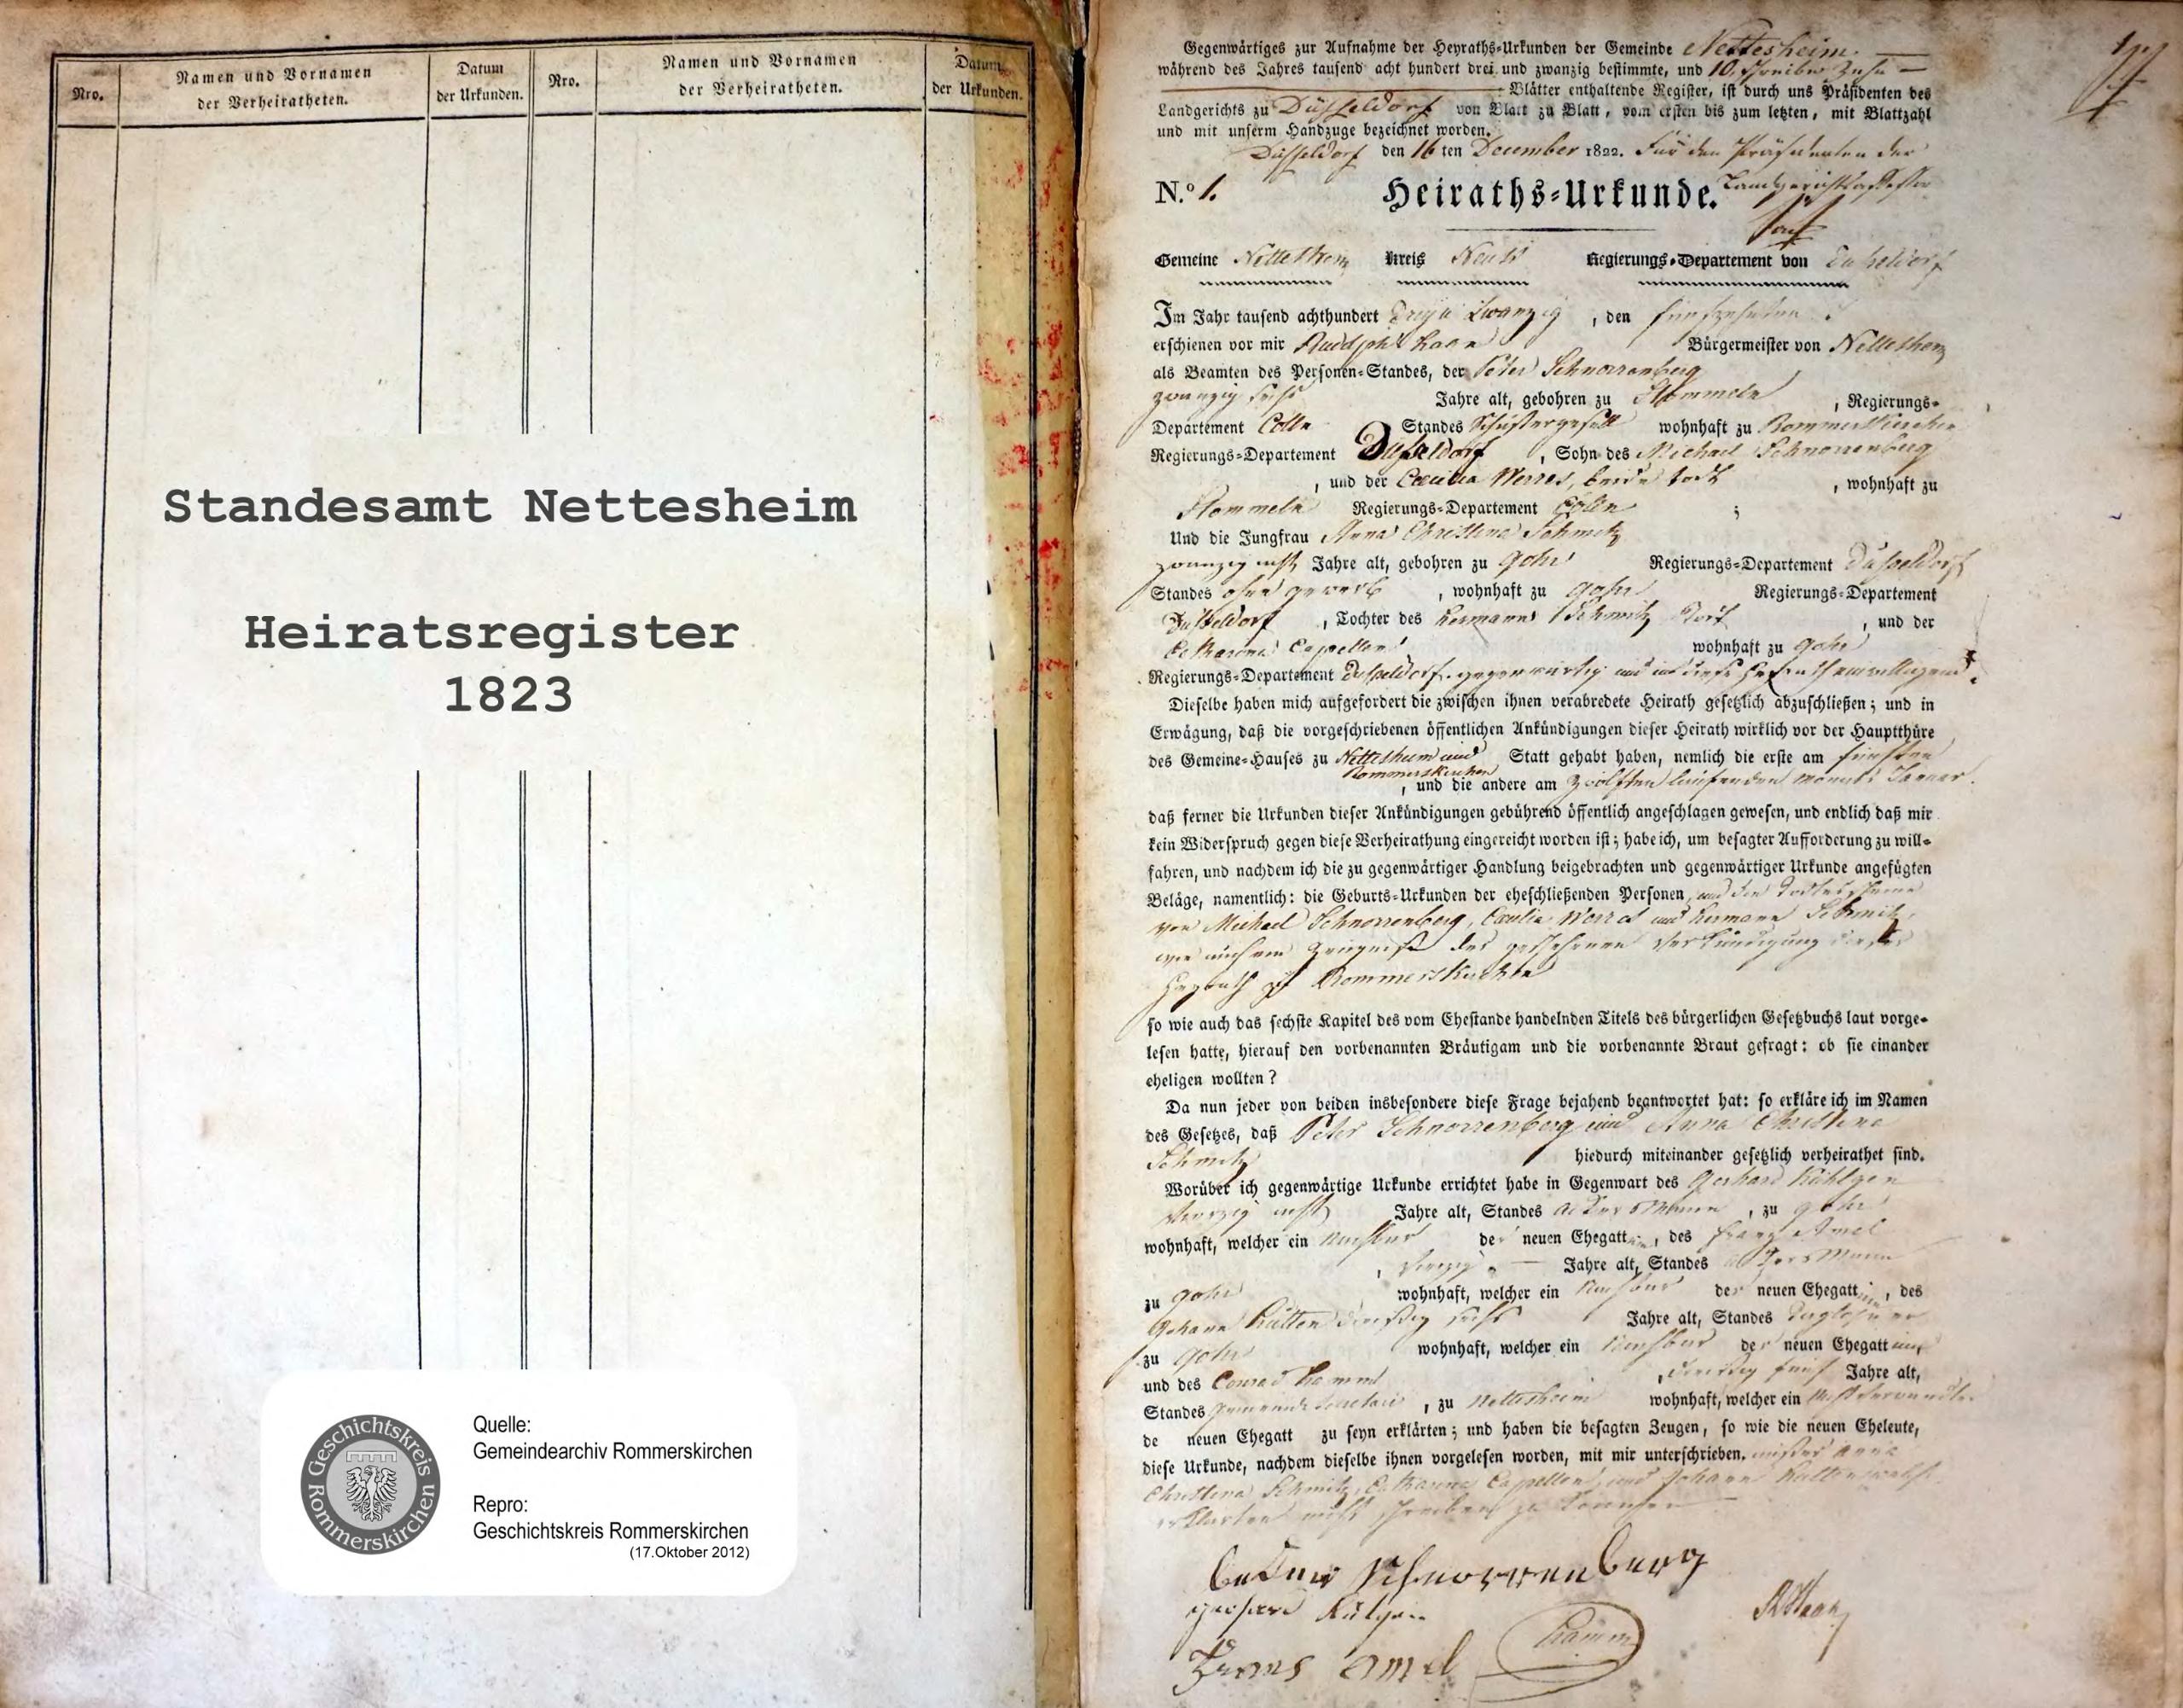 Nro.
Namen und Vornamen
der Verheiratheten.
Datum
der Urkunden.
Nro.
Namen und Vornamen
der Verheiratheten.
Datum
der Urkunden.
Standesamt Nettesheim
Heiratsregister
1823
Geschichtskreis Rommerskirchen
Quelle:
Gemeindearchiv Rommerskirchen
Repro:
Geschichtskreis Rommerskirchen
(17.Oktober 2012)
Gegenwärtiges zur Aufnahme der Heyraths-Urkunden der Gemeinde Nettesheim.
während des Jahres tausend acht hundert drei und zwanzig bestimmte, und 10. schreibe Zehn
Blätter enthaltende Register, ist durch uns Präsidenten des
Landgerichts zu Düsseldorf von Blatt zu Blatt, vom ersten bis zum letzten, mit Blattzahl
und mit unserm Handzuge bezeichnet worden.
Düsseldorf den 16 ten December 1822. Für den Präsidenten der
Landgerichtsassessor
N.º 1. Heiraths-Urkunde.
Gemeine Nettesheim Kreis Neuss Regierungs-Departement von Düsseldorf
Im Jahr tausend achthundert Drey u Zwanzig, den fünfzehnten
erschienen vor mir Rudolph Haan Bürgermeister von Nettesheim
als Beamten des Personen-Standes, der Peter Schnorrenberg
zwanzig sechs Jahre alt, gebohren zu Stommeln, Regierungs-
Departement Cölln Standes Schustergesell wohnhaft zu Rommerskirchen
Regierungs-Departement Düsseldorf, Sohn des Michael Schnorrenberg
, und der Caecilia Werres, beide todt, wohnhaft zu
Stommeln Regierungs-Departement Cölln ;
Und die Jungfrau Anna Christina Schmitz
zwanzig acht Jahre alt, gebohren zu Gohr Regierungs-Departement Düsseldorf
Standes ohne gewerb, wohnhaft zu Gohr Regierungs-Departement
Düsseldorf, Tochter des Hermann Schmitz, und der
Catharina Capellen wohnhaft zu Gohr
Regierungs-Departement Düsseldorf gegenwärtig und in diese Heyrath einwilligend.
Dieselbe haben mich aufgefordert die zwischen ihnen verabredete Heirath gesetzlich abzuschließen; und in
Erwägung, daß die vorgeschriebenen öffentlichen Ankündigungen dieser Heirath wirklich vor der Hauptthüre
des Gemeine-Hauses zu Nettesheim und Statt gehabt haben, nemlich die erste am fünften
Rommerskirchen, und die andere am zwölften laufenden Monats Januar.
daß ferner die Urkunden dieser Ankündigungen gebührend öffentlich angeschlagen gewesen, und endlich daß mir
kein Widerspruch gegen diese Verheirathung eingereicht worden ist; habe ich, um besagter Aufforderung zu will-
fahren, und nachdem ich die zu gegenwärtiger Handlung beigebrachten und gegenwärtiger Urkunde angefügten
Beläge, namentlich: die Geburts-Urkunden der eheschließenden Personen, und den Todtesscheine
von Michael Schnorrenberg, Caecilia Werres und Hermann Schmitz,
wie auch ein Zeugniß der geschehenen Verkündigung dieser
Heyrath zu Rommerskirchen
so wie auch das sechste Kapitel des vom Ehestande handelnden Titels des bürgerlichen Gesetzbuchs laut vorge-
lesen hatte, hierauf den vorbenannten Bräutigam und die vorbenannte Braut gefragt: ob sie einander
eheligen wollten?
Da nun jeder von beiden insbesondere diese Frage bejahend beantwortet hat: so erkläre ich im Namen
des Gesetzes, daß Peter Schnorrenberg und Anna Christina
Schmitz hiedurch miteinander gesetzlich verheirathet sind.
Worüber ich gegenwärtige Urkunde errichtet habe in Gegenwart des Gerhard Külgen
vierzig acht Jahre alt, Standes Ackersmann, zu Gohr
wohnhaft, welcher ein Nachbar der neuen Ehegattin, des Franz Amel
, vierzig Jahre alt, Standes Ackersmann
zu Gohr wohnhaft, welcher ein Nachbar der neuen Ehegattin, des
Johann Hütten dreißig sechs Jahre alt, Standes Taglöhner
zu Gohr wohnhaft, welcher ein Nachbar der neuen Ehegattinn
und des Conrad Hamm, dreißig fünf Jahre alt,
Standes Gemeinde Secretair, zu Nettesheim wohnhaft, welcher ein nicht verwandter
de neuen Ehegatt zu seyn erklärten; und haben die besagten Zeugen, so wie die neuen Eheleute,
diese Urkunde, nachdem dieselbe ihnen vorgelesen worden, mit mir unterschrieben. außer Anna
Christina Schmitz, Catharina Capellen, und Johann Hütten welche
erklärten nicht schreiben zu können
Schnorrenberg
gerhard Külgen
RHaan
Hamm
Frans Amel